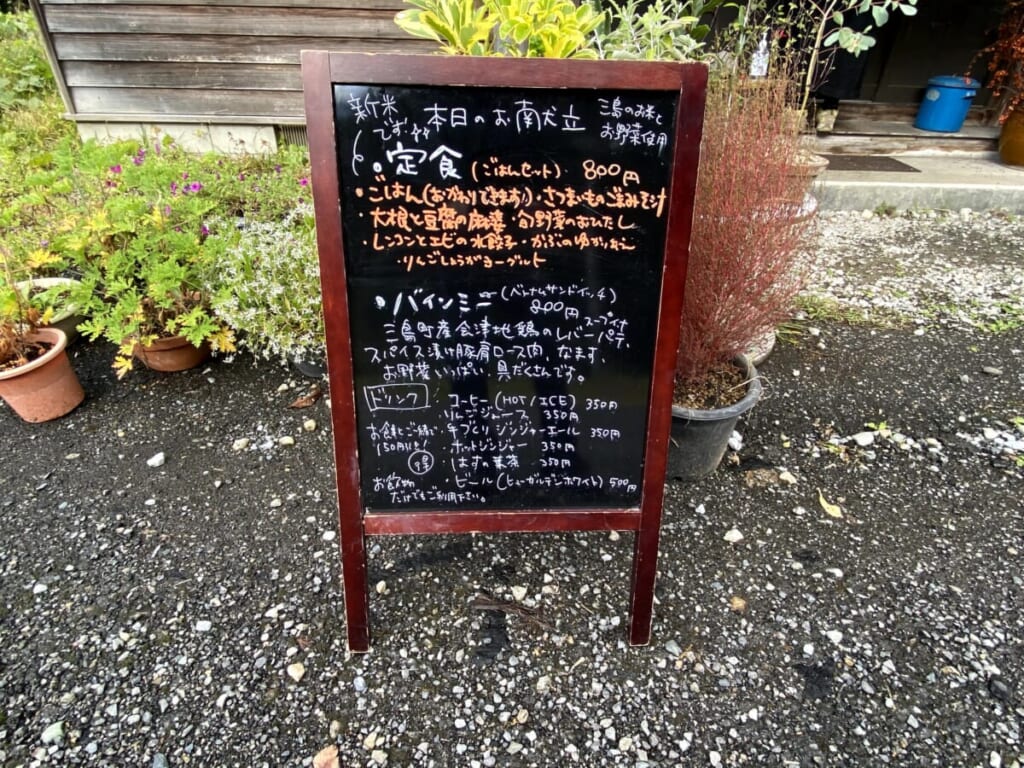 新米です 本日のお南犬立 三島のお米と
お野菜使用
・定食(ごはんセット) 800円
・ごはん(おかわりできます!)・さつまいものごまみそ汁
・大根と豆腐の麻婆・旬野菜のおひたし
・レンコンとエビの水餃子・かぶのゆかりあえ
・りんごしょうがヨーグルト
・バインミー(ベトナムサンドイッチ)
800円 スープ付
三島町産会津地鶏のレバーパテ、
スパイス漬け豚肩ロース肉、なます、
お野菜いっぱい、具だくさんです。
ドリンク ・コーヒー(HOT/ICE) 350円
・りんごジュース 350円
お食事とご一緒で ・手づくりジンジャーエール 350円
150円引き! ・ホットジンジャー 350円
得 ・はすの葉茶 350円
お飲物 ・ビール(ヒューガルデンホワイト) 500円
だけでもご利用下さい。